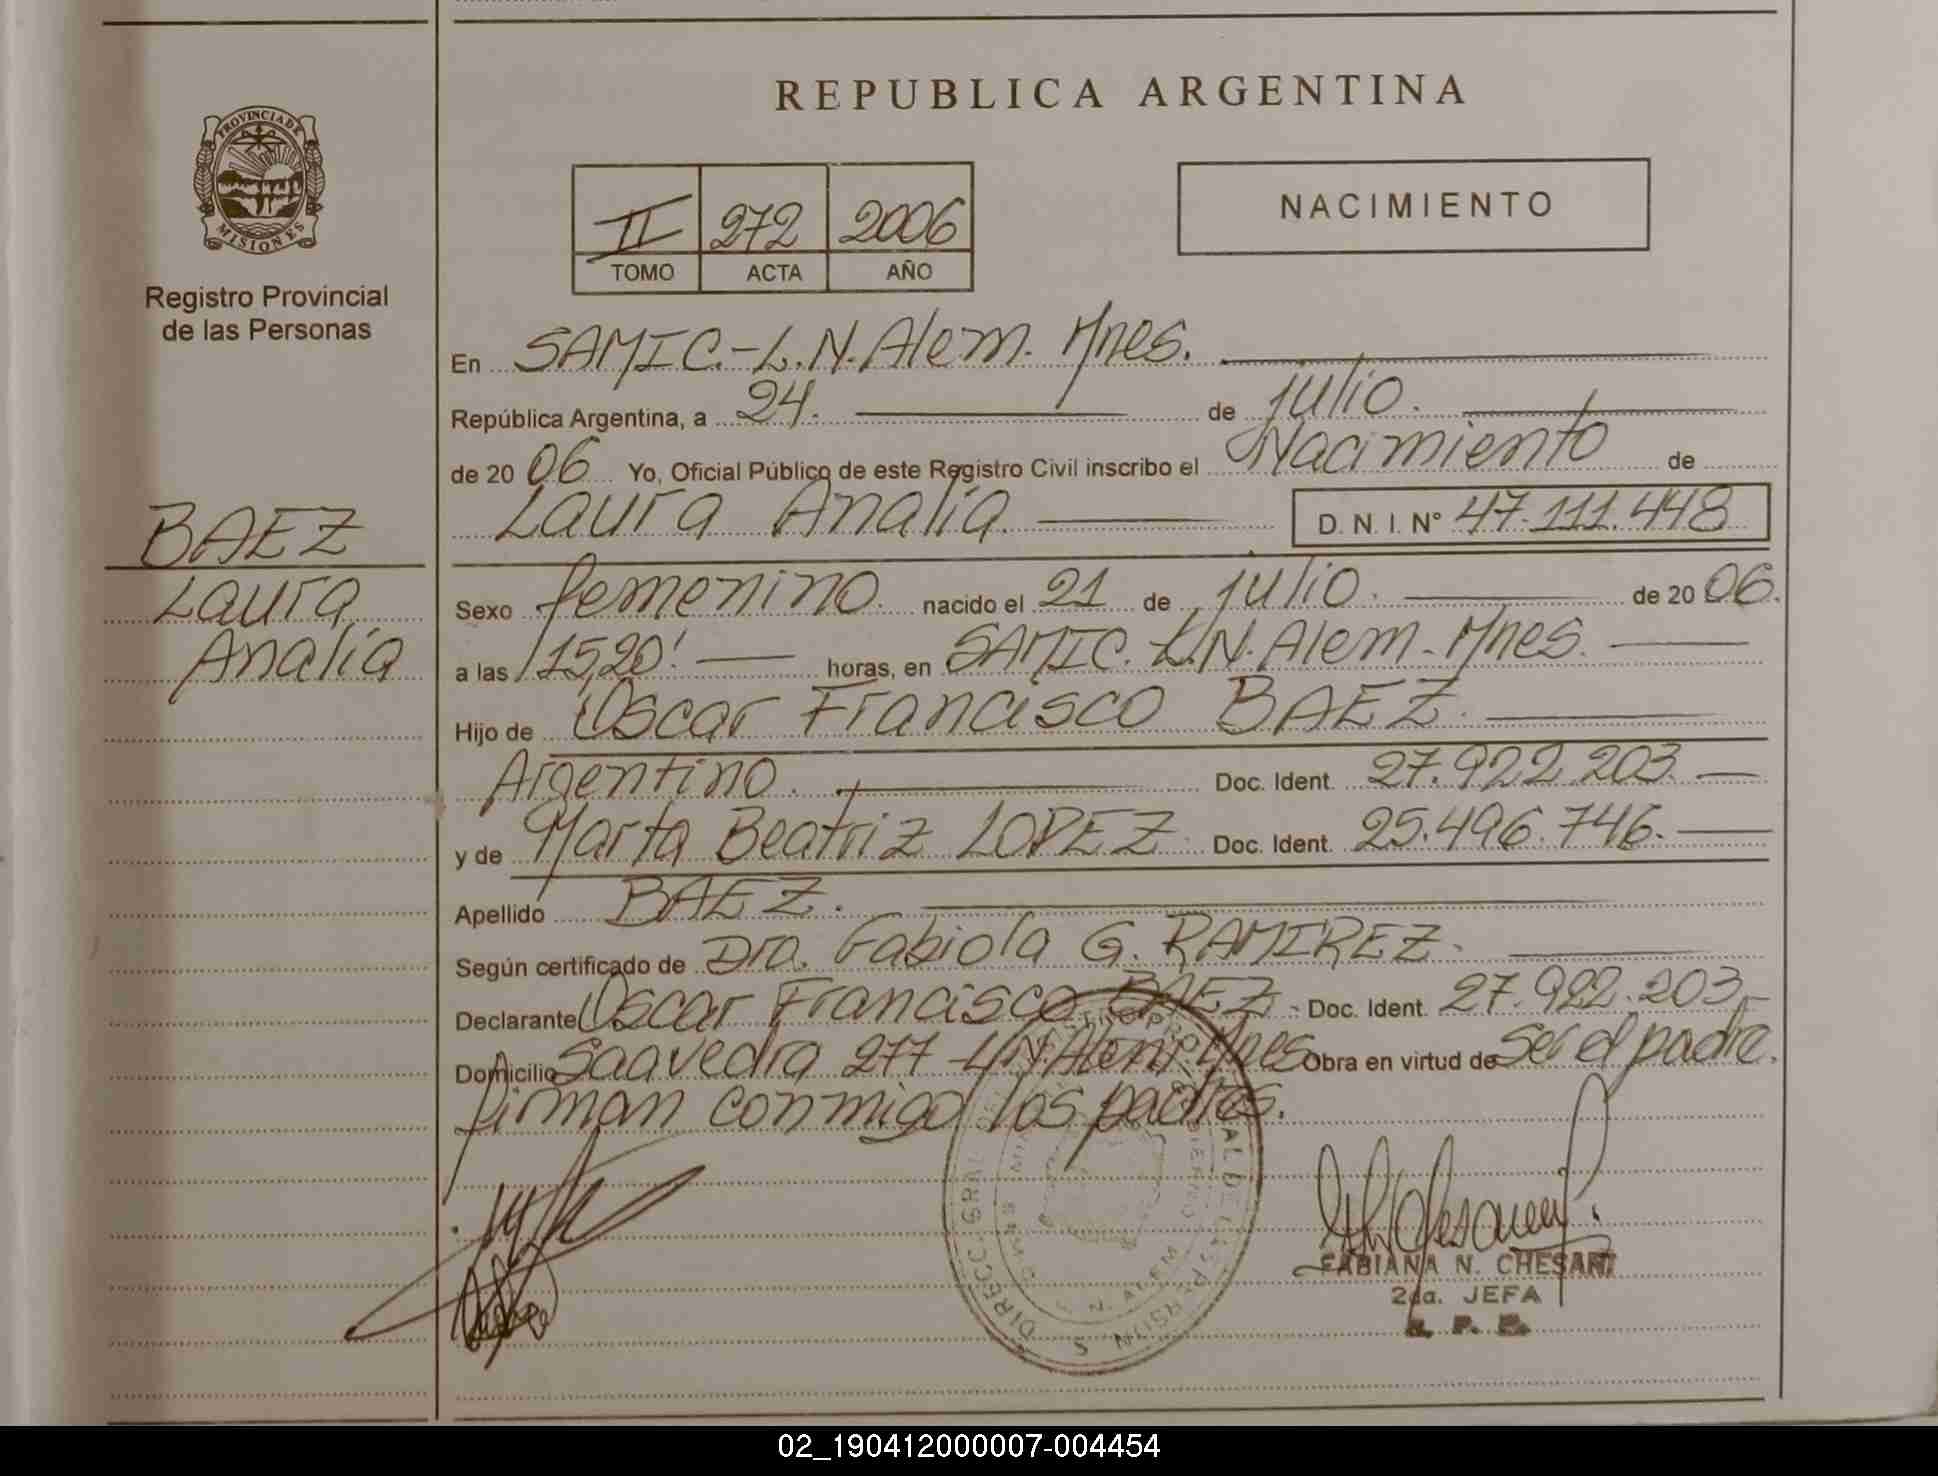 REPUBLICA ARGENTINA
PROVINCIA DE
MISIONES
Registro Provincial
de las Personas
BAEZ
Laura
Analía
II 272 2006
TOMO ACTA AÑO
NACIMIENTO
En SAMIC.-L.N.Alem. Mnes.
República Argentina, a 24. de julio.
de 20 06 Yo, Oficial Público de este Registro Civil inscribo el Nacimiento de
Laura Analía D.N.I. N° 47.111.448
Sexo femenino. nacido el 21 de julio. de 20 06.
a las 15,20'. horas, en SAMIC. L.N.Alem. Mnes.
Hijo de Oscar Francisco BAEZ.
Argentino. Doc. Ident. 27.922.203.
y de Marta Beatriz LOPEZ Doc. Ident. 25.496.746.
Apellido BAEZ.
Según certificado de Dra. Fabiola G. RAMIREZ.
Declarante Oscar Francisco BAEZ Doc. Ident. 27.922.203
Domicilio Saavedra 277 L.N.Alem. Mnes Obra en virtud de ser el padre.
firman conmigo los padres.
FABIANA N. CHESANI
2da. JEFA
R. P. P.
02_190412000007-004454